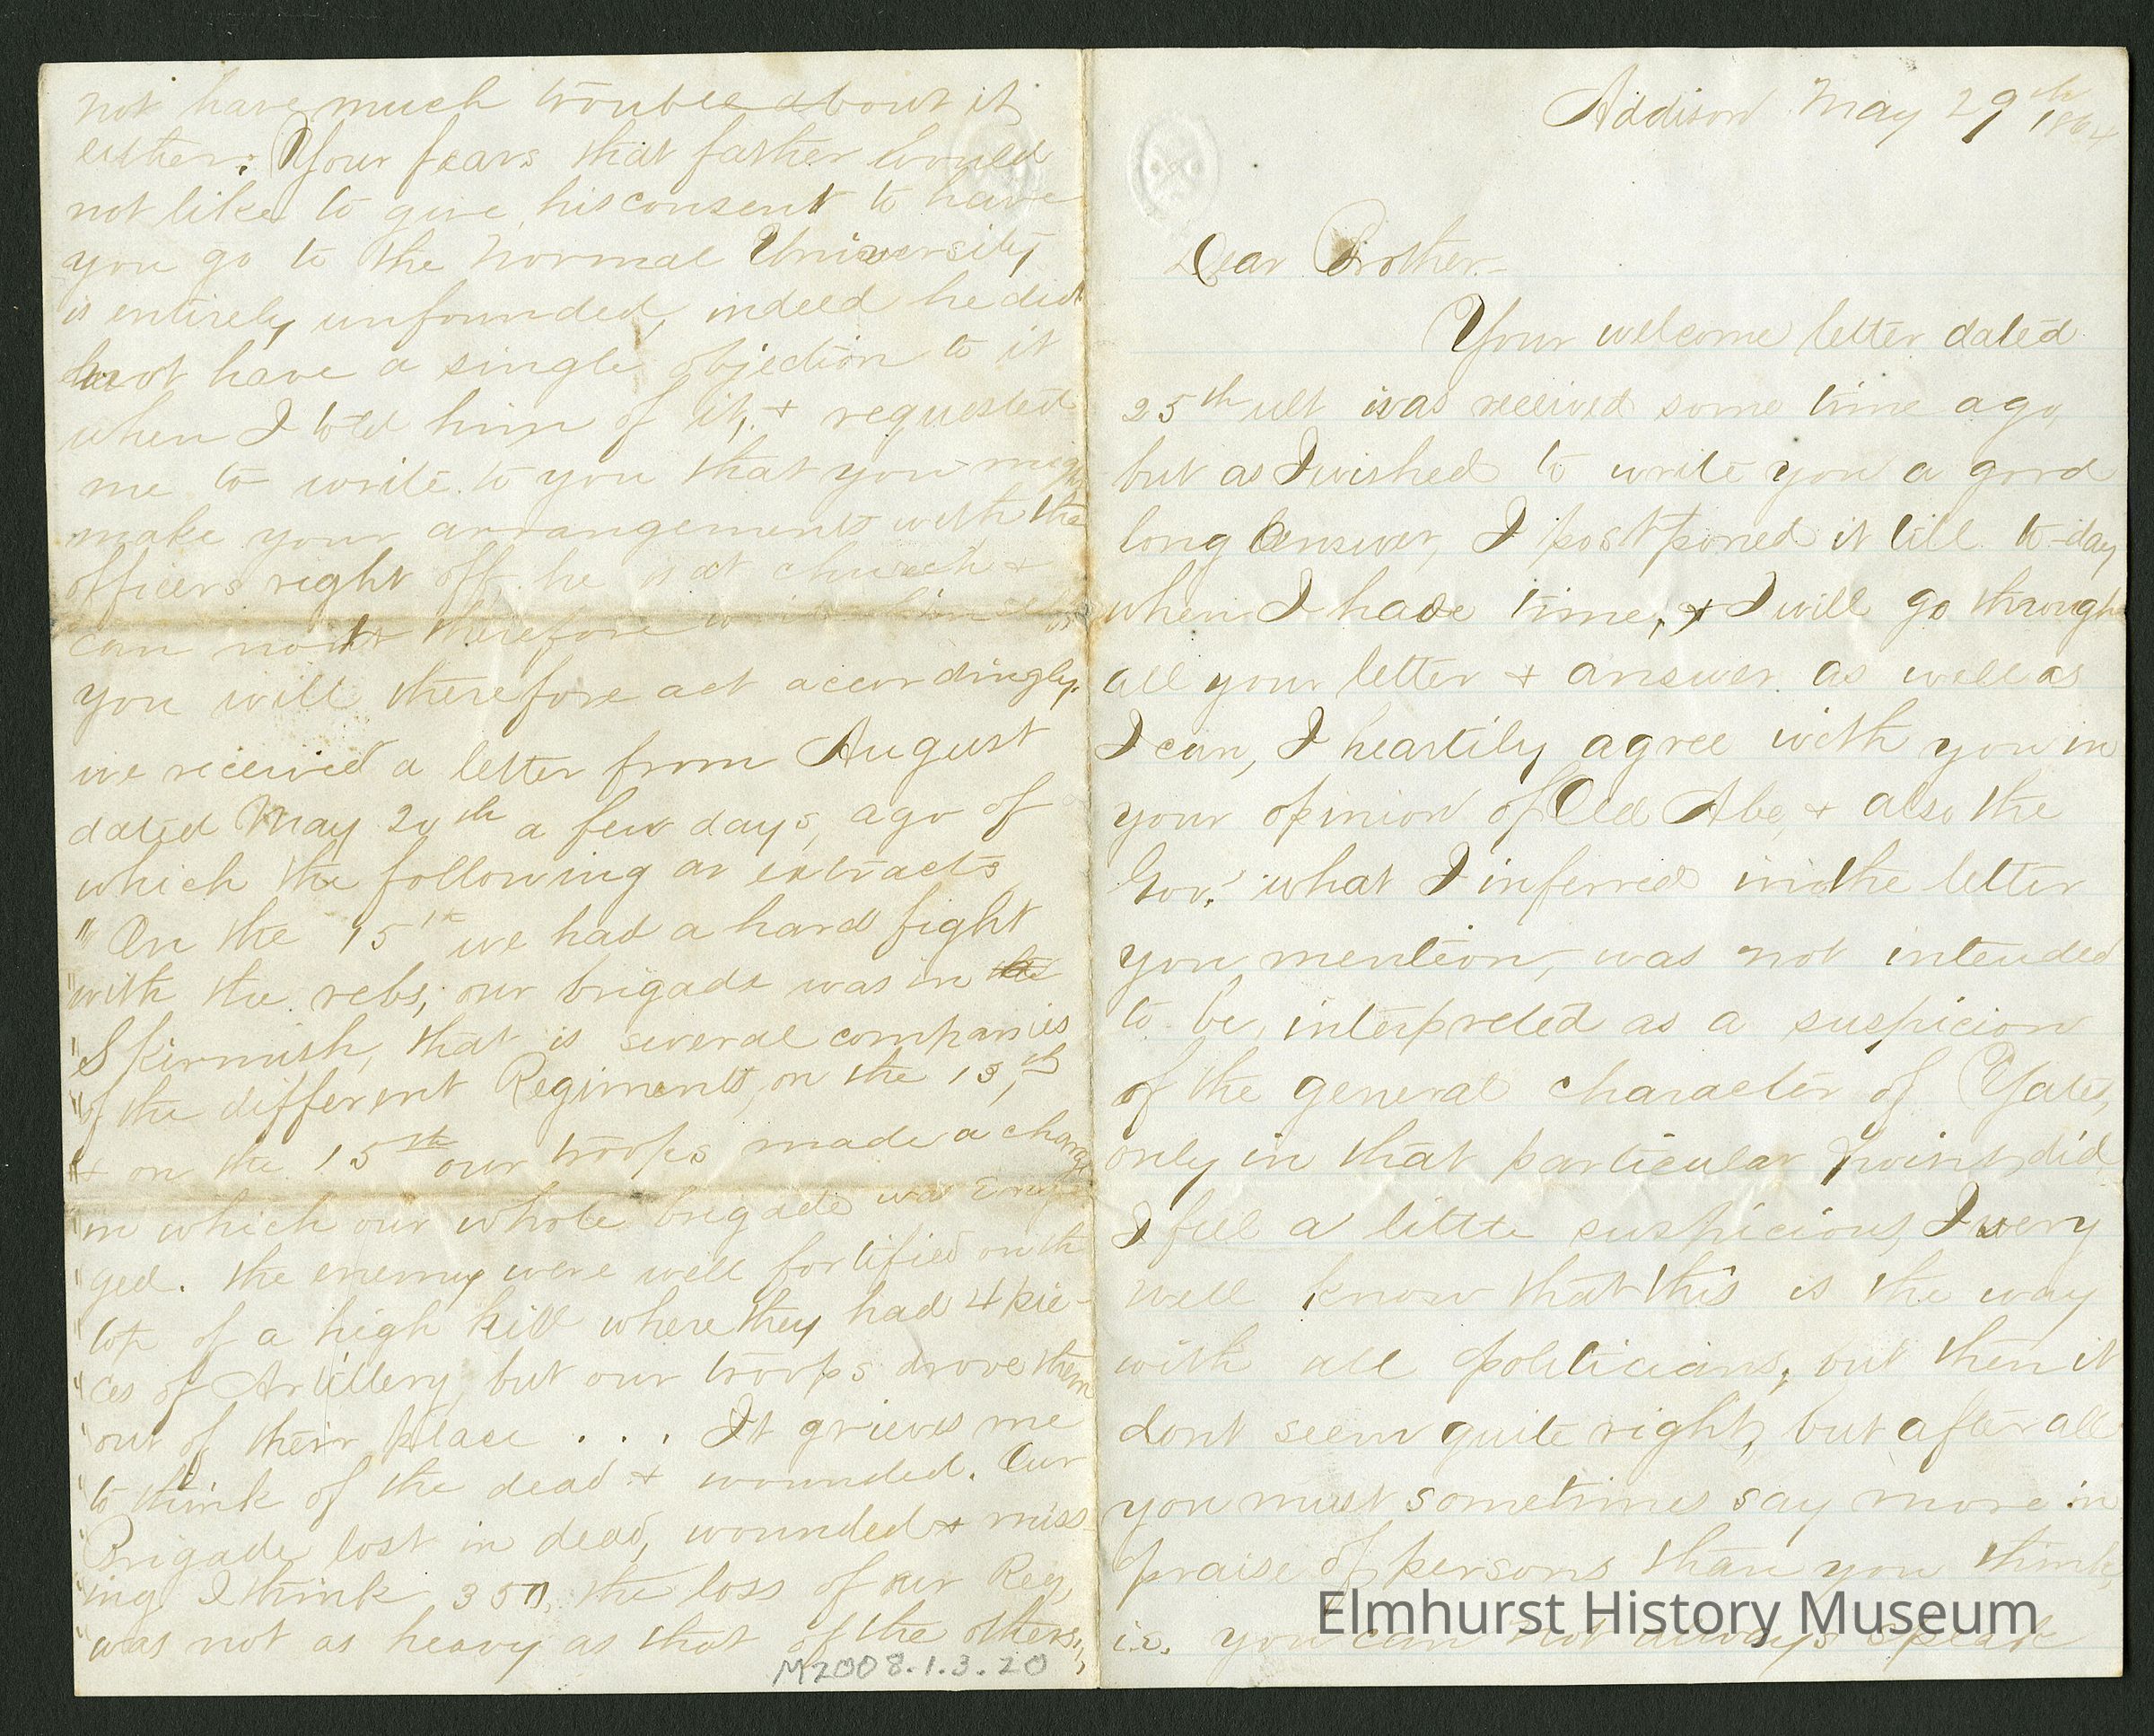 Addison May 29th 1864
Dear Brother
Your welcome letter dated
25th ult was received some time ago,
but as I wished to write you a good
long answer, I postponed it till to-day
when I have time, + I will go through
all your letter + answer as well as
I can, I heartily agree with you in
your opinion of Old Abe, + also the
Gov. what I inferred in the letter
you mention, was not intended
to be interpreted as a suspicion
of the general character of Yates,
only in that particular point did
I feel a little suspicious, I very
well know that this is the way
with all politicians, but then it
dont seem quite right, but after all
you must sometimes say more in
praise of persons than you think,
i.e. you can not always speak
not have much trouble about it
either. Your fears that father would
not like to give his consent to have
you go to the Normal University
is entirely unfounded, indeed he did
not have a single objection to it
when I told him of it, + requested
me to write to you that you might
make your arrangements with the
officers right off, he is at church +
can not therefore write himself
you will therefore act accordingly.
we received a letter from August
dated May 20th a few days, ago of
which the following ar extracts
"On the 15th we had a hard fight
"with the rebs, our brigade was in the
"Skirmish, that is several companies
"of the different Regiments, on the 13th,
"+ on the 15th our troops made a charge
"in which our whole brigade was enga
"ged. the enemy were well fortified on the
"top of a high hill where they had 4 pie-
"ces of Artillery, but our troops drove them
"out of their place . . . . It grieves me
"to think of the dead + wounded. Our
"Brigade lost in dead, wounded + miss
"ing I think 350, the loss of our Reg
"was not as heavy as that of the others,"
M2008.1.3.20
Elmhurst History Museum